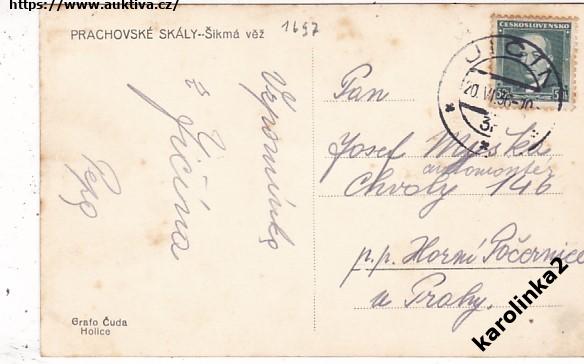 https://www.auktiva.cz/
PRACHOVSKÉ SKÁLY--Šikmá věž
1697
Vzpomínka
z Jičína
Pepa
Grafo Čuda
Holice
ČESKOSLOVENSKO
JIČÍN
20.VI.36-10
Pan
Josef Myška
automonter
Chvaly 146
p.p. Horní Počernice
u Prahy.
karolinka2